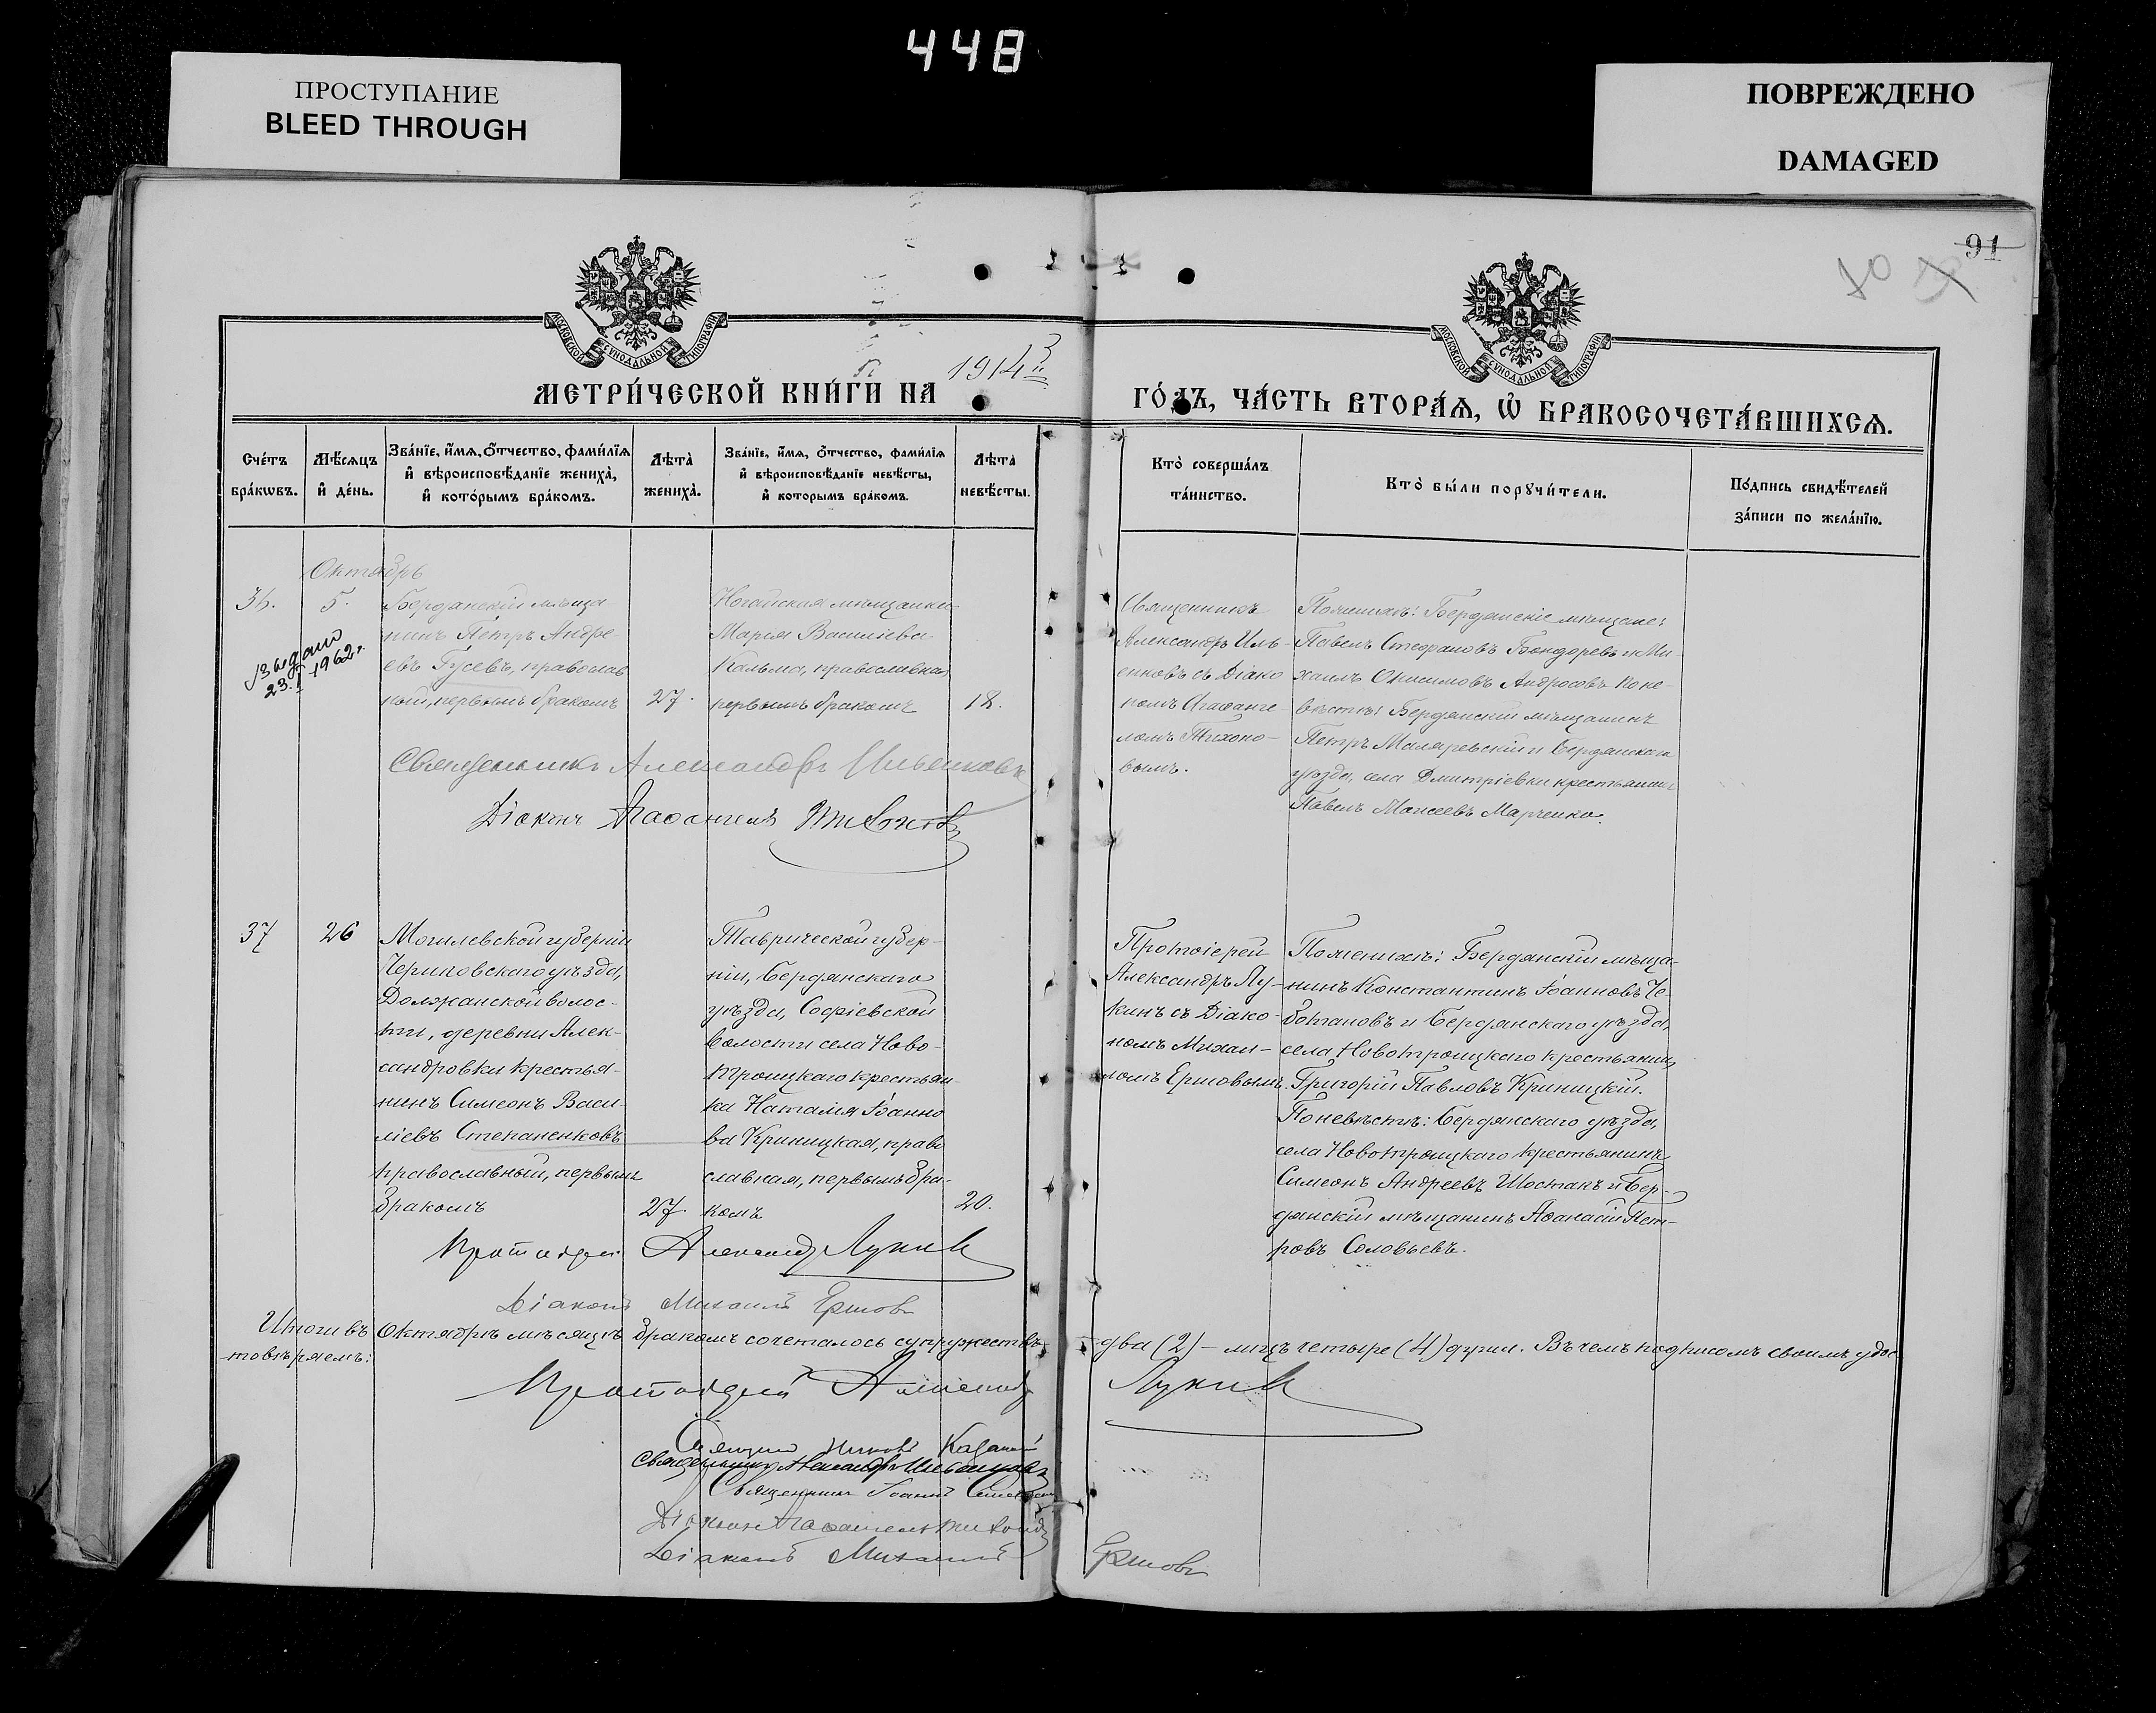 448
ПРОСТУПАНИЕ
BLEED THROUGH
ПОВРЕЖДЕНО
DAMAGED
91
МОСКОВСКОЙ СУНОДАЛЬНОЙ ТИПОГРАФІИ
МОСКОВСКОЙ СУНОДАЛЬНОЙ ТИПОГРАФІИ
МЕТРИ́ЧЕСКОЙ КНИ́ГИ НА 1914
ГО́ДЪ, ЧА́СТЬ ВТОРА́Ѧ, Ѡ҆ БРАКОСОЧЕТА́ВШИХСѦ.
Сче́тъ бра́кѡвъ.
Мѣ́сяцъ и҆ де́нь.
Зва́нїе, и҆́мѧ, ѻ҆́тчество, фами́лїѧ
и҆ вѣроисповѣ́данїе жениха̀,
и҆ кото́рымъ бра́комъ.
Лѣта̀ жениха̀.
Зва́нїе, и҆́мѧ, ѻ҆́тчество, фами́лїѧ
и҆ вѣроисповѣ́данїе невѣ́сты,
и҆ которымъ бра́комъ.
Лѣта̀ невѣ́сты.
Кто̀ соверша́лъ та́инство.
Кто̀ бы́ли порꙋчи́тели.
По́дпись свидѣ́телей
за́писи по жела́нїю.
Октябрь
36.
5.
Выдано
23.I 1962 г.
Бердянскій мѣща
нинъ Петръ Андре-
евъ Гусевъ, православ
ный, первымъ бракомъ
27.
Ногайская мѣщанка
Марія Василіева
Кальма, православная
первымъ бракомъ
18.
Священникъ
Александръ Иль-
енковъ съ Діако
номъ Агаѳанге
ломъ Тихоно-
вымъ.
По женихѣ: Бердянскіе мѣщане:
Павелъ Стефановъ Бондаревъ и Ми-
хаилъ Онисимовъ Андросовъ по не-
вѣстѣ: Бердянскій мѣщанинъ
Петръ Маляревскій и Бердянскаго
уѣзда, села Дмитріевки крестьянинъ
Павелъ Моисеевъ Марченко.
Священникъ Александръ Ильенковъ
Діаконъ Агаѳангелъ Тихоновъ
37
26
Могилевской губерніи
Чериковскаго уѣзда,
Должанской волос-
ти, деревни Алек-
сандровки крестья-
нинъ Симеонъ Васи-
ліевъ Степаненковъ
православный, первымъ
бракомъ
27.
Таврической губер-
ніи, Бердянскаго
уѣзда, Софіевской
волости села Ново-
троицкаго крестьян-
ка Наталія Іоанно
ва Криницкая, право
славная, первымъ бра-
комъ
20.
Протоіерей
Александръ Лу-
кинъ съ Діако-
номъ Михаи-
ломъ Ершовымъ.
По женихѣ: Бердянскій мѣща-
нинъ Константинъ Іоанновъ Че-
ботановъ и Бердянскаго уѣзда,
села Новотроицкаго крестьянинъ
Григорій Павловъ Криницкій.
По невѣстѣ: Бердянскаго уѣзда,
села Новотроицкаго крестьянинъ
Симеонъ Андреевъ Шостакъ и Бер-
дянскій мѣщанинъ Аѳанасій Пет-
ровъ Соловьевъ.
Протоіерей Александръ Лукинъ
Діаконъ Михаилъ Ершовъ
Итого въ Октябрѣ мѣсяцѣ бракомъ сочеталось супружествъ два (2) – лицъ четыре (4) души. Въ чемъ подписомъ своимъ удос
товѣряемъ:
Протоіерей Александръ Лукинъ
Священникъ Александръ Ильенковъ
Священникъ Іоаннъ
Діаконъ Агаѳангелъ Тихоновъ
Діаконъ Михаилъ Ершовъ